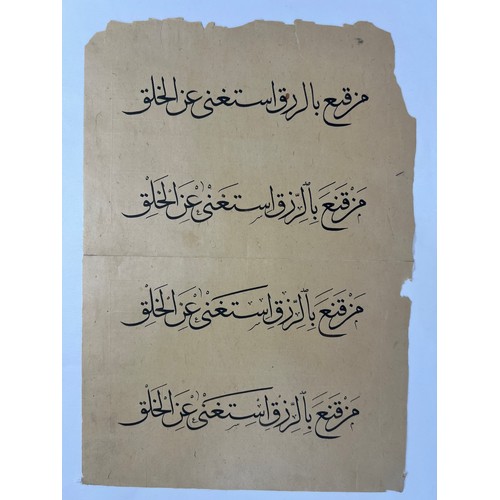 من قنع بالرزق استغنى عن الخلق
مَن قَنَعَ بِالرِّزق استَغنىٰ عَنِ الخَلقْ
مَن قَنَعَ بِالرِّزق استَغنىٰ عَنِ الخَلقْ
مَن قَنَعَ بِالرِّزق استَغنىٰ عَنِ الخَلقْ